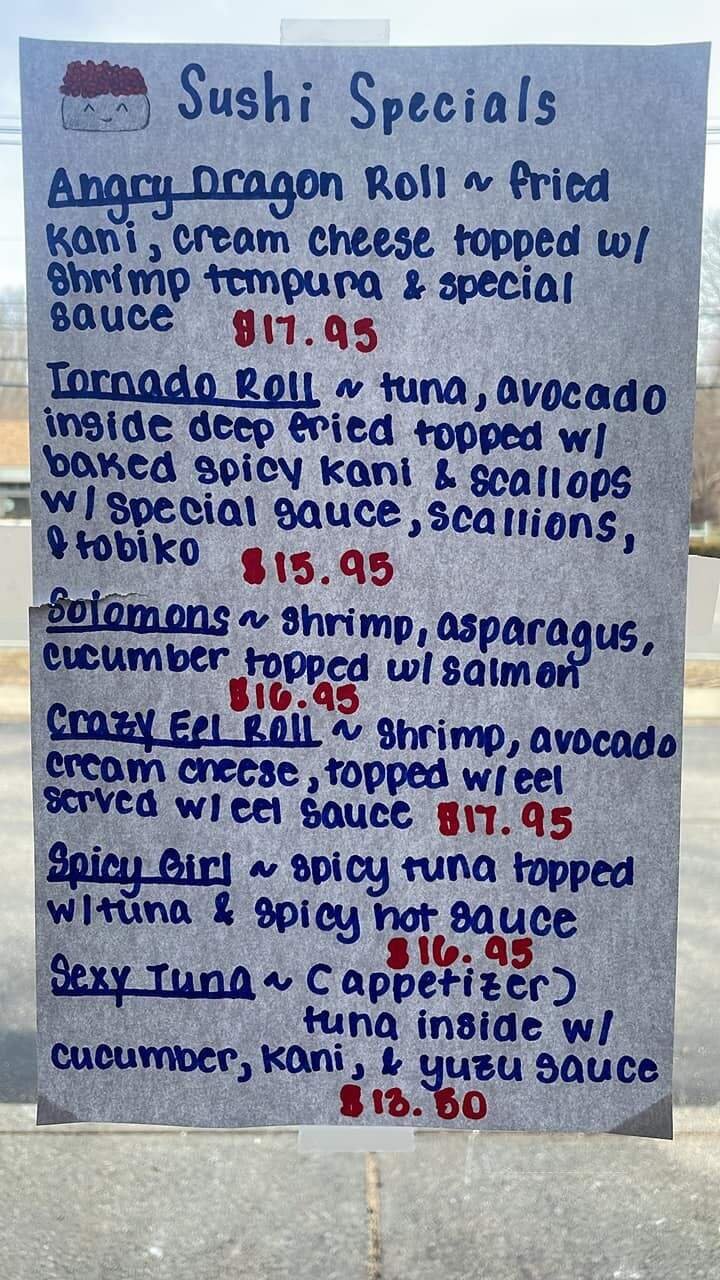 Sushi Specials
Angry Dragon Roll ~ fried
kani, cream cheese topped w/
shrimp tempura & special
sauce $17.95
Tornado Roll ~ tuna, avocado
inside deep fried topped w/
baked spicy kani & scallops
w/ special sauce, scallions,
& tobiko $15.95
Solomons ~ shrimp, asparagus,
cucumber topped w/ salmon
$16.95
Crazy Eel Roll ~ shrimp, avocado
cream cheese, topped w/ eel
served w/ eel sauce $17.95
Spicy Girl ~ spicy tuna topped
w/ tuna & spicy hot sauce
$16.95
Sexy Tuna ~ (appetizer)
tuna inside w/
cucumber, kani, & yuzu sauce
$13.50